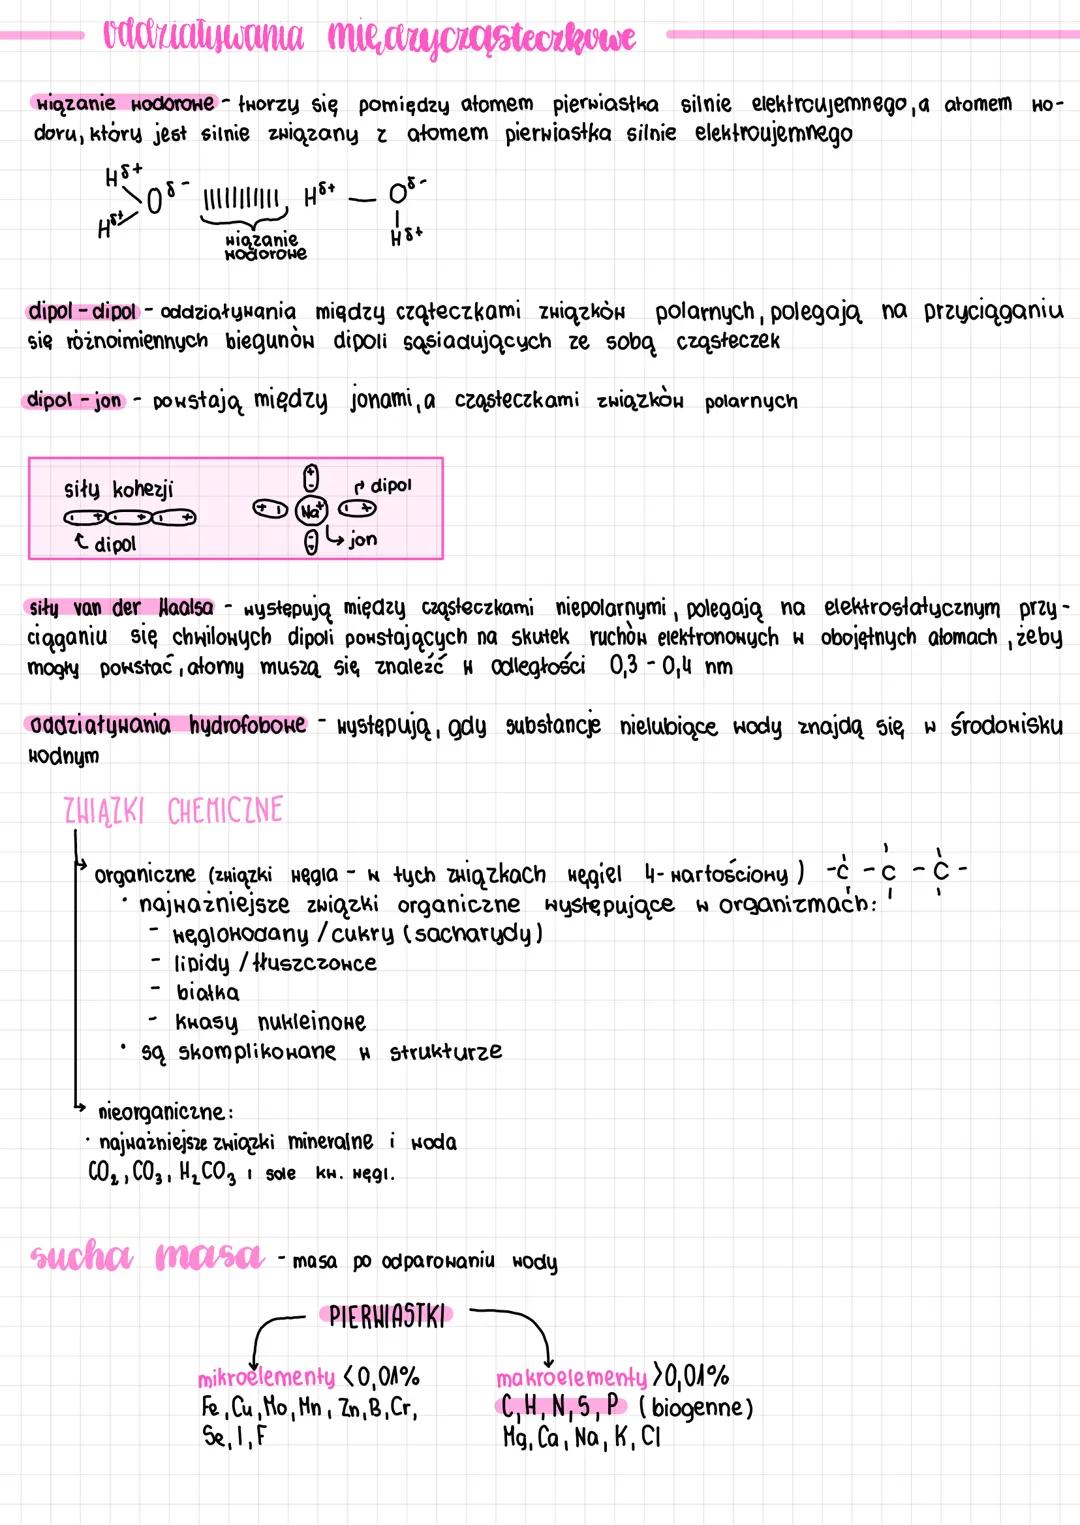 oddziaływania międzycząsteczkowe
wiązanie wodorowe - tworzy się pomiędzy atomem pierwiastka silnie elektroujemnego, a atomem wo-
doru, który jest silnie związany z atomem pierwiastka silnie elektroujemnego
Hδ+
Oδ- Hδ+ — Oδ-
Hδ+ Hδ+
wiązanie
wodorowe
dipol - dipol - oddziaływania między cząteczkami związków polarnych, polegają na przyciąganiu
się różnoimiennych biegunów dipoli sąsiadujących ze sobą cząsteczek
dipol - jon - powstają między jonami, a cząsteczkami związków polarnych
siły kohezji
dipol
+ -
dipol
Na+
jon
siły van der Waalsa - występują między cząsteczkami niepolarnymi, polegają na elektrostatycznym przy-
ciąganiu się chwilowych dipoli powstających na skutek ruchów elektronowych w obojętnych atomach, żeby
mogły powstać, atomy muszą się znaleźć w odległości 0,3 - 0,4 nm
oddziaływania hydrofobowe - występują, gdy substancje nielubiące wody znajdą się w środowisku
wodnym
ZWIĄZKI CHEMICZNE
organiczne (związki węgla - w tych związkach węgiel 4-wartościowy) -C-C-C-
· najważniejsze związki organiczne występujące w organizmach:
- węglowodany / cukry (sacharydy)
- lipidy / tłuszczowce
- białka
- kwasy nukleinowe
· są skomplikowane w strukturze
nieorganiczne:
· najważniejsze związki mineralne i woda
CO₂, CO₃, H₂CO₃ i sole kw. węgl.
sucha masa - masa po odparowaniu wody
PIERWIASTKI
mikroelementy <0,01%
Fe, Cu, Mo, Mn, Zn, B, Cr,
Se, I, F
makroelementy >0,01%
C, H, N, S, P (biogenne)
Mg, Ca, Na, K, Cl